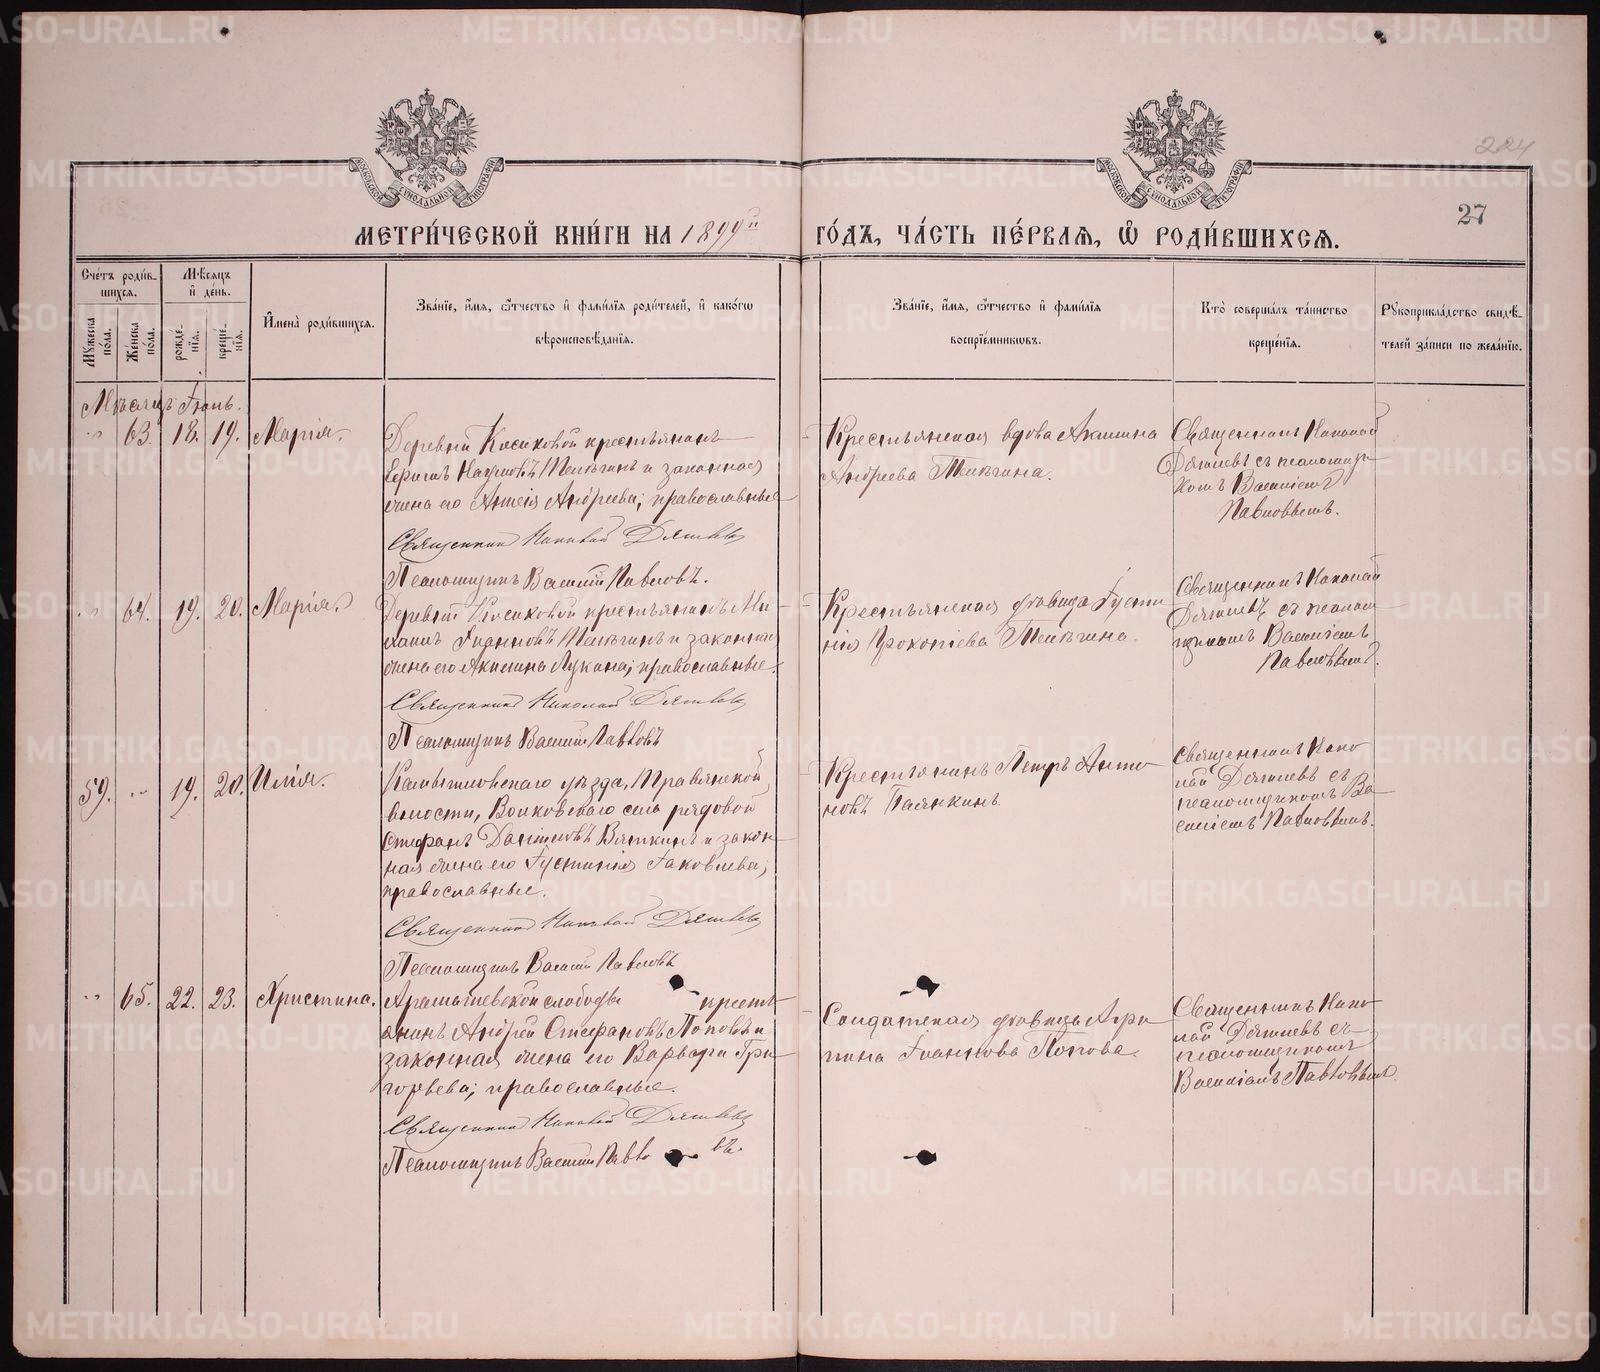 224
27
МЕТРИ́ЧЕСКОЙ КНИ́ГИ НА 1899й ГО́ДЪ, ЧА́СТЬ ПЕ́РВАЯ, Ѽ РОДИ́ВШИХСЯ.
Сче́тъ роди́вшихся.
Мꙋжеска по́ла.
Же́нска по́ла.
Мѣ́сяцъ и҆ де́нь.
рожде́нїя.
креще́нїя.
И҆мена̀ роди́вшихся.
Зва́нїе, и҆́мя, ѻ҆́тчество и҆ фамı́лїя роди́телей, и҆ како́гѡ
вѣроисповѣ́данїя.
Зва́нїе, и҆́мя, ѻ҆́тчество и҆ фами́лїя
воспрїе́мникѡвъ.
Кто̀ соверша́лъ та́инство
креще́нїя.
Рꙋкоприкла́дство свидѣ́-
телей за́писи по жела́нїю.
Мѣсяцъ Іюнь.
" 63. 18. 19. Марія.
Деревни Косиковой крестьянинъ
Наумовъ и законная
жена его Андреева; православные
Священникъ Николай
Псаломщикъ Василій Павловъ.
Крестьянская вдова Акилина
Андреева
Священникъ Николай
съ псаломщи-
комъ Василіемъ
Павловымъ.
" 64. 19. 20. Марія.
Деревни Косиковой крестьянинъ Ми-
хаилъ Іоанновъ и законная
жена его Акилина Лукина; православные.
Священникъ Николай
Псаломщикъ Василій Павловъ
Крестьянская дѣвица Іусти-
нія Прокопіева
Священникъ Николай
съ псалом-
щикомъ Василіемъ
Павловымъ.
59. " 19. 20. Илія.
Камышловскаго уѣзда, Травянской
волости, Волковскаго села рядовой
Стефанъ Даниловъ Вяткинъ и закон-
ная жена его Іустинія Іаковлева;
православные.
Священникъ Николай
Псаломщикъ Василій Павловъ
Крестьянинъ Петръ Анто-
новъ
Священникъ Нико-
лай съ
псаломщикомъ Ва-
силіемъ Павловымъ.
" 65. 22. 23. Христина.
Арамашевской слободы кресть-
янинъ Андрей Стефановъ Поповъ и
законная жена его Варвара Гри-
горьева; православные.
Священникъ Николай
Псаломщикъ Василій Павловъ.
Солдатская дѣвица Агри-
пина Іоаннова Попова.
Священникъ Нико-
лай съ
псаломщикомъ
Василіемъ Павловымъ.
METRIKI.GASO-URAL.RU